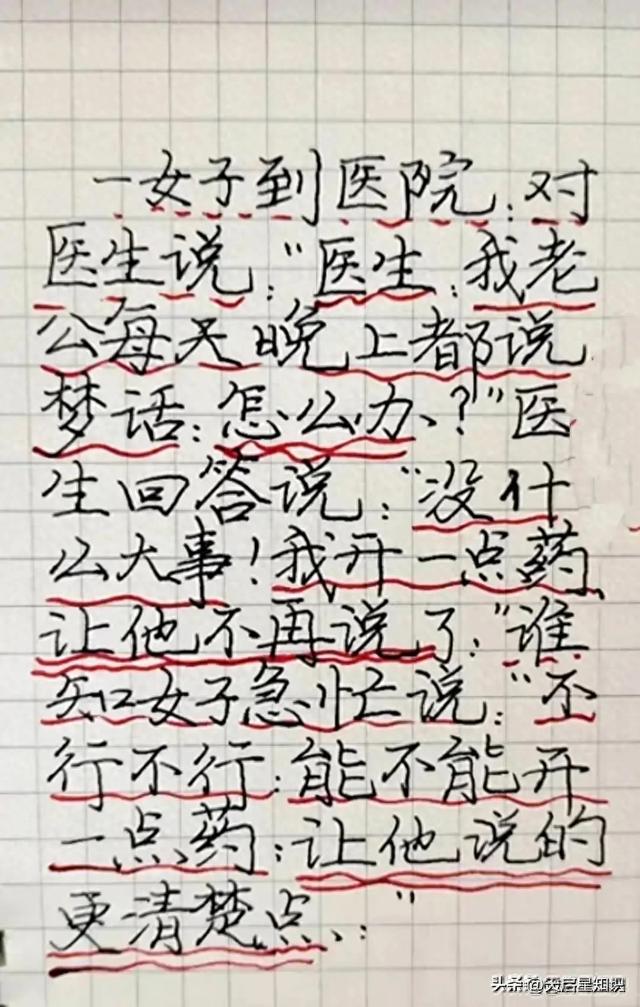 一女子到医院：对
医生说："医生：我老
公每天晚上都说
梦话：怎么办？"医
生回答说："没什
么大事！我开一点药
让他不再说了："谁
知女子急忙说："不
行不行：能不能开
一点药：让他说的
更清楚点："
头条@天启星知识